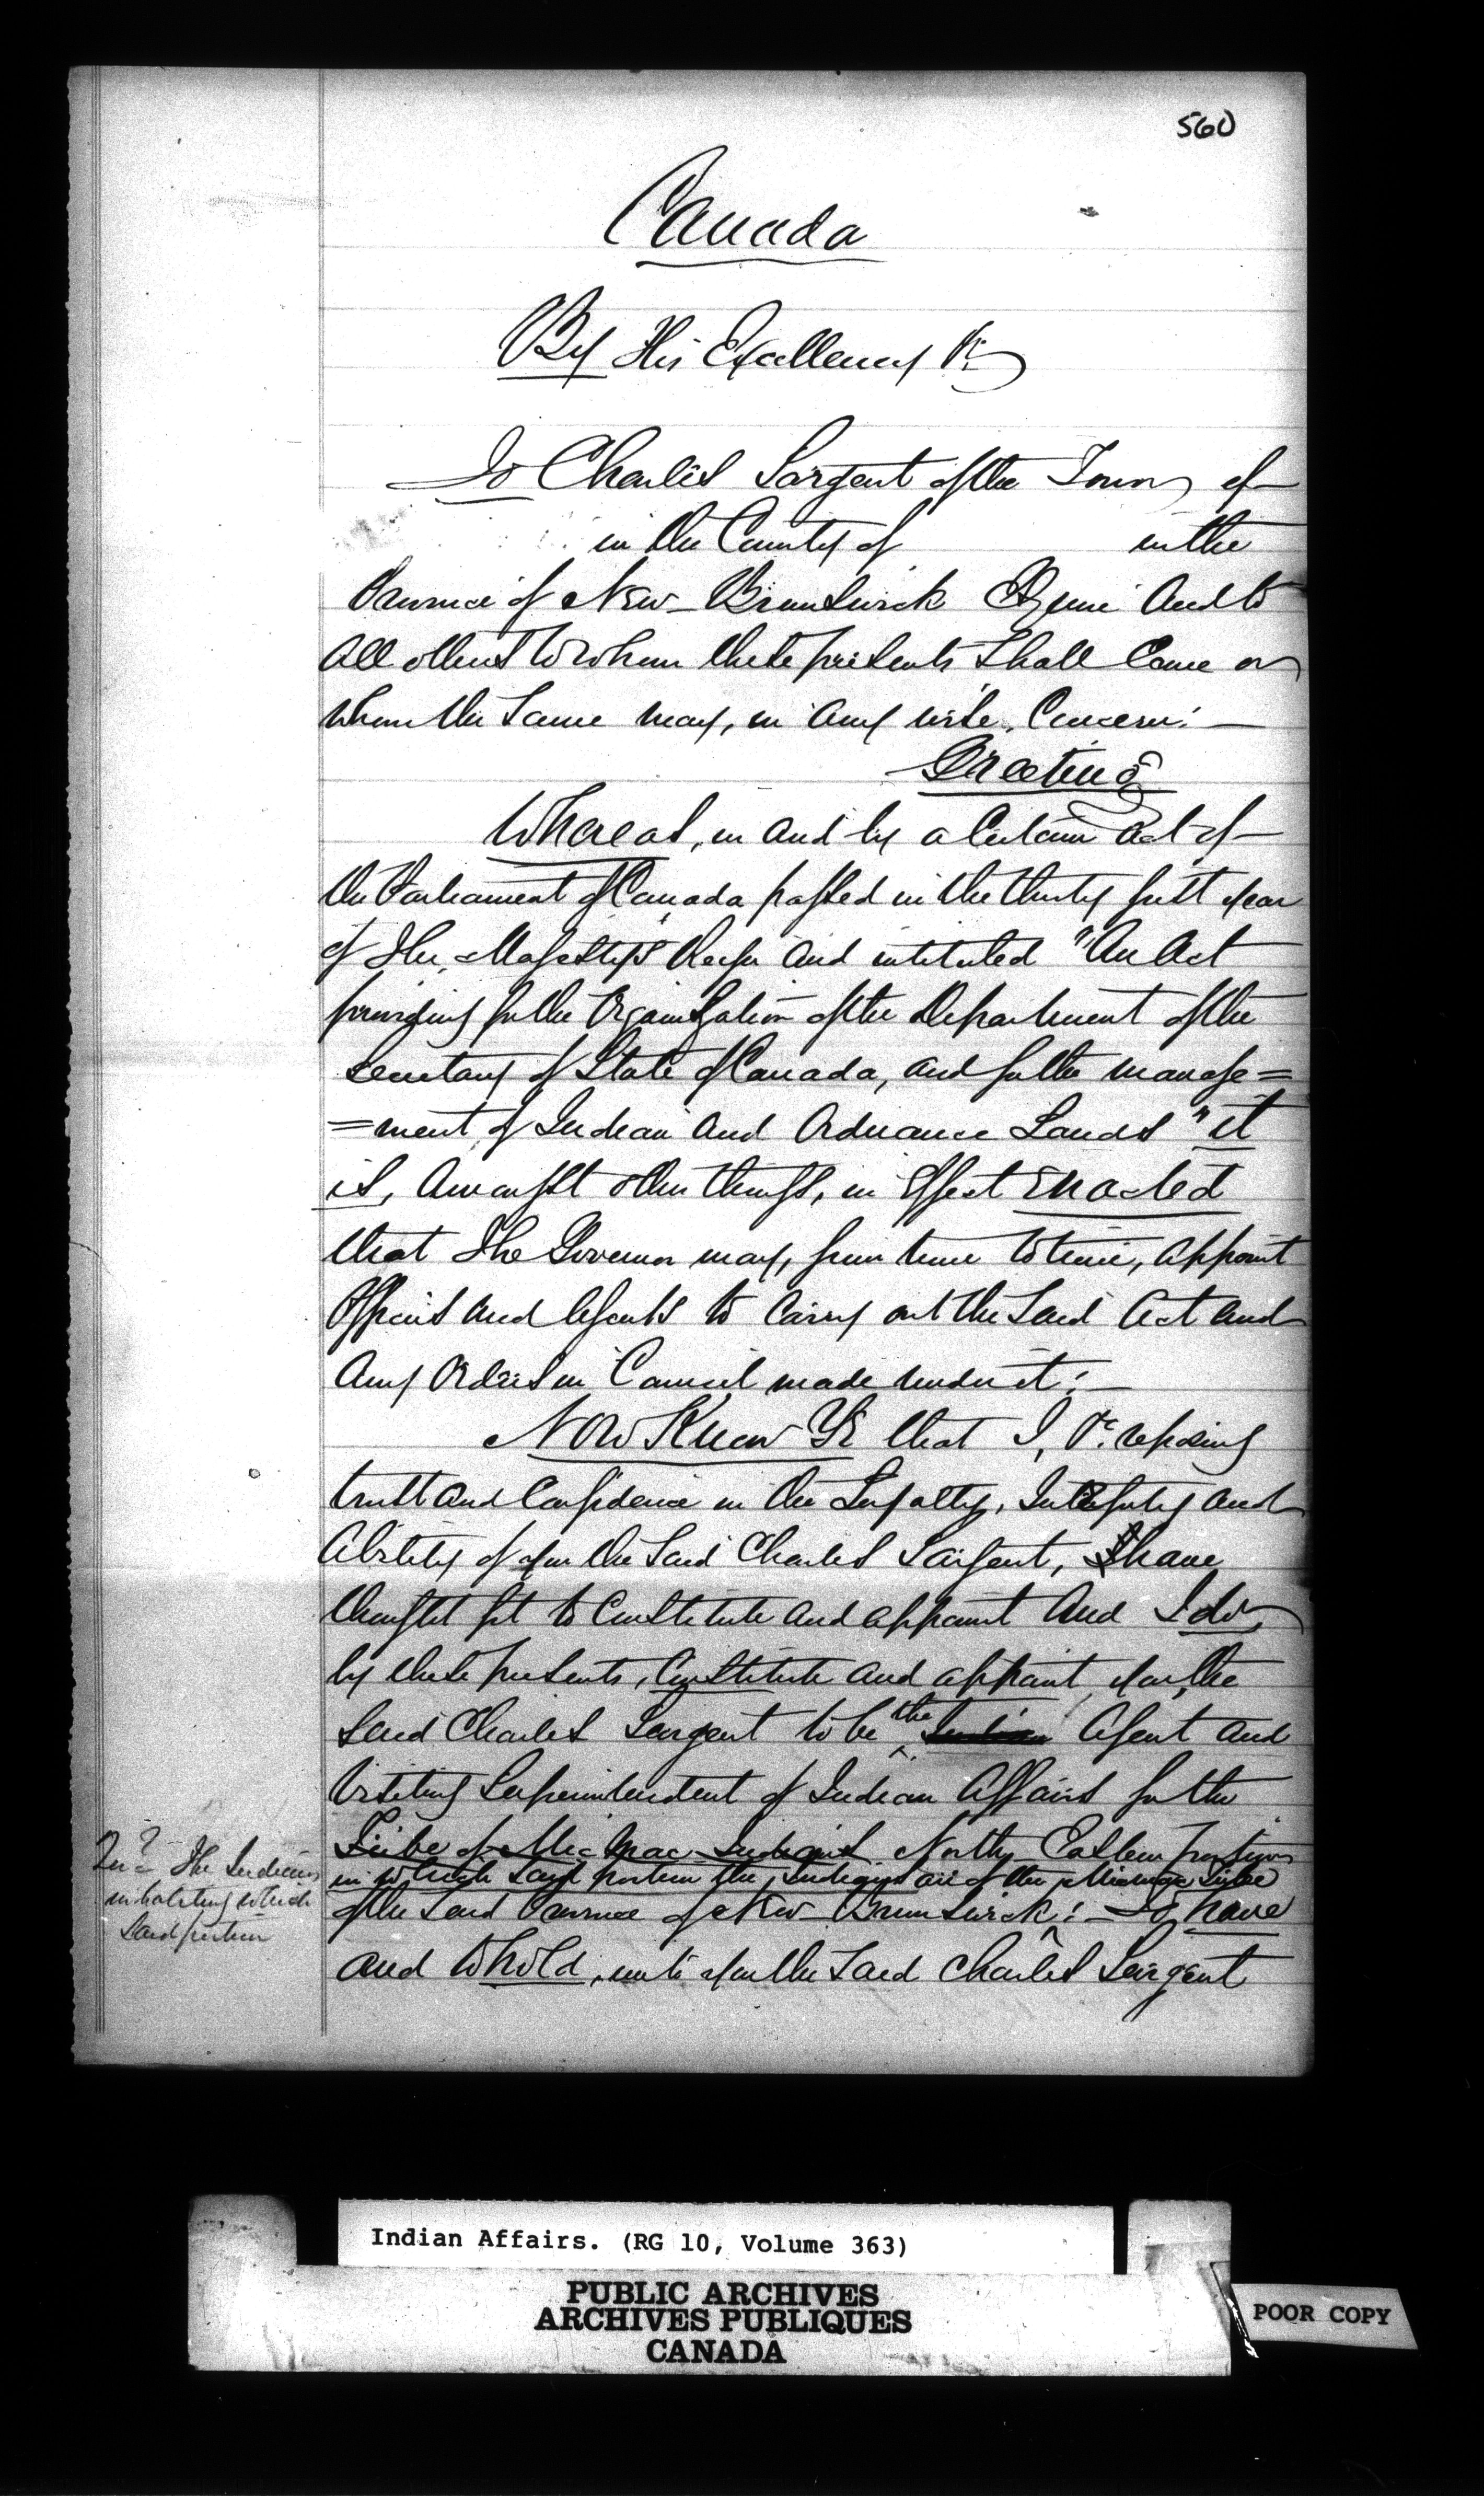 560
Canada
By His Excellency &c
To Charles Sargent of the Town of
in the County of in the
Province of New-Brunswick Esquire And to
All others to whom these presents shall come or
whom the same may, in any wise, Concern:—
Greeting
Whereas, in and by a Certain Act of
the Parliament of Canada passed in the thirty first year
of Her Majesty's Reign and intituled "An Act
providing for the Organization of the Department of the
Secretary of State of Canada, and for the manage=
=ment of Indian and Ordnance Lands" it
is, Amongst other things, in effect Enacted
that The Governor may, from time to time, appoint
Officers and Agents to Carry out the Said Act and
Any Orders in Council made under it:—
Now Know Ye that I, &c. reposing
trust and Confidence in the Loyalty, Integrity and
Ability of you the Said Charles Sargent, have
thought fit to Constitute and appoint And I do,
by these presents, Constitute and appoint you, the
Said Charles Sargent to be the Indian Agent and
Visiting Superintendent of Indian Affairs for the
Tribe of Mic Mac Indians North Eastern portion
in which said portion the Indians are of the Micmac Tribe
of the Said Province of New-Brunswick:— To have
and to hold, unto you the Said Charles Sargent
Qu? The Indians
inhabiting which
Said portion
Indian Affairs. (RG 10, Volume 363)
PUBLIC ARCHIVES
ARCHIVES PUBLIQUES
CANADA
POOR COPY